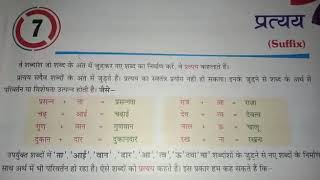 7
प्रत्यय
(Suffix)
वे शब्दांश जो शब्द के अंत में जुड़कर नए शब्द का निर्माण करें, वे प्रत्यय कहलाते हैं।
प्रत्यय सदैव शब्दों के अंत में जुड़ते हैं। प्रत्यय का स्वतंत्र प्रयोग नहीं हो सकता। इनके जुड़ने से शब्द के अर्थ में
परिवर्तन या विशेषता उत्पन्न होती है। जैसे—
प्रसन्न + ता = प्रसन्नता
चढ़ + आई = चढ़ाई
गुण + वान = गुणवान
दुकान + दार = दुकानदार
= राजा
= देवता
= चालू
उपर्युक्त शब्दों में 'ता', 'आई', 'वान', 'दार', 'आ', 'ता', 'ऊ' तथा 'ना' शब्दांशों के जुड़ने से नए शब्दों के निर्माण
साथ अर्थ में भी परिवर्तन हो रहा है। ऐसे शब्दों को प्रत्यय कहते हैं। इस प्रकार हम कह सकते हैं कि-